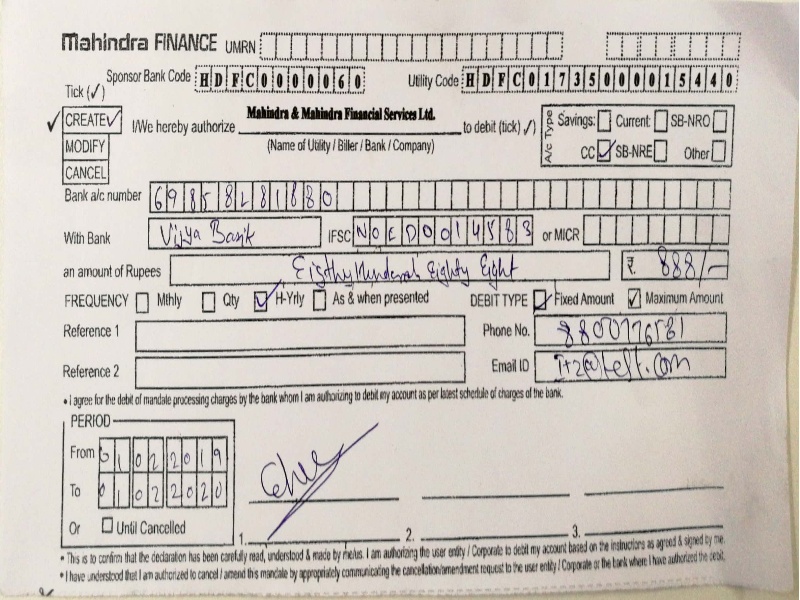 Mahindra FINANCE UMRN
Tick (✓) Sponsor Bank Code HDFC0000060 Utility Code HDFC01735000015440
CREATE ✓ I/We hereby authorize Mahindra & Mahindra Financial Services Ltd. to debit (tick ✓) A/c Type Savings: Current: SB-NRO
MODIFY (Name of Utility / Biller / Bank / Company) CC ✓ SB-NRE Other
CANCEL
Bank a/c number
With Bank Vijya Bank IFSC NOED0014583 or MICR
an amount of Rupees Eighty Eight ₹. 888/-
FREQUENCY Mthly Qty ✓ H-Yrly As & when presented DEBIT TYPE ✓ Fixed Amount ✓ Maximum Amount
Reference 1 Phone No.
Reference 2 Email ID
• I agree for the debit of mandate processing charges by the bank whom I am authorizing to debit my account as per latest schedule of charges of the bank.
PERIOD
From 01022019
To 01022020
Or Until Cancelled
1. 2. 3.
• This is to confirm that the declaration has been carefully read, understood & made by me/us. I am authorizing the user entity / Corporate to debit my account based on the instructions as agreed & signed by me.
• I have understood that I am authorized to cancel / amend this mandate by appropriately communicating the cancellation/amendment request to the user entity / Corporate or the bank where I have authorized the debit.